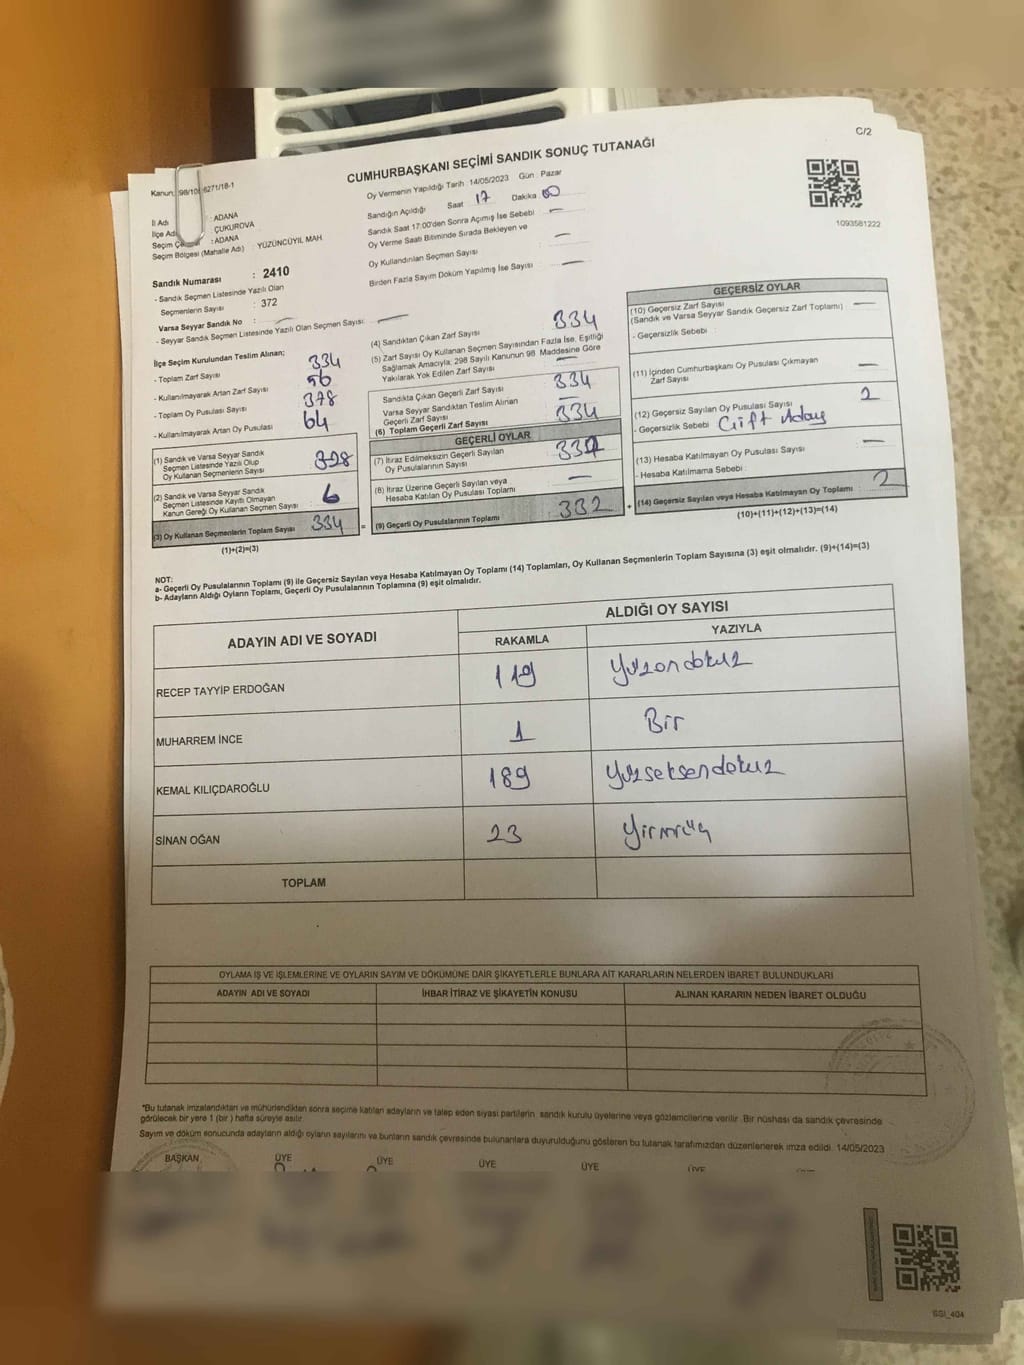 C/2
CUMHURBAŞKANI SEÇİMİ SANDIK SONUÇ TUTANAĞI
6271/18-1
1093581222
İl Adı : ADANA
: ÇUKUROVA
: ADANA
Seçim Bölgesi (Mahalle Adı) : YÜZÜNCÜYIL MAH
Sandık Numarası : 2410
- Sandık Seçmen Listesinde Yazılı Olan
Seçmenlerin Sayısı : 372
Varsa Seyyar Sandık No :
- Seyyar Sandık Seçmen Listesinde Yazılı Olan Seçmen Sayısı:
Oy Vermenin Yapıldığı Tarih 14/05/2023 Gün : Pazar
Sandığın Açıldığı Saat 17 Dakika 00
Sandık Saat 17:00'den Sonra Açımış İse Sebebi —
Oy Verme Saati Bitiminde Sırada Bekleyen ve
Oy Kullandırılan Seçmen Sayısı —
Birden Fazla Sayım Döküm Yapılmış İse Sayısı —
İlçe Seçim Kurulundan Teslim Alınan;
- Toplam Zarf Sayısı
- Kullanılmayarak Artan Zarf Sayısı
- Toplam Oy Pusulası Sayısı 378
- Kullanılmayarak Artan Oy Pusulası 64
(1) Sandık ve Varsa Seyyar Sandık
Seçmen Listesinde Yazılı Olup
Oy Kullanan Seçmenlerin Sayısı 328
(2) Sandık ve Varsa Seyyar Sandık
Seçmen Listesinde Kayıtlı Olmayan
Kanun Gereği Oy Kullanan Seçmen Sayısı : 6
(3) Oy Kullanan Seçmenlerin Toplam Sayısı 334
(1)+(2)=(3)
(4) Sandıktan Çıkan Zarf Sayısı 334
(5) Zarf Sayısı Oy Kullanan Seçmen Sayısından Fazla İse, Eşitliği
Sağlamak Amacıyla; 298 Sayılı Kanunun 98. Maddesine Göre
Yakılarak Yok Edilen Zarf Sayısı —
Sandıkta Çıkan Geçerli Zarf Sayısı 334
Varsa Seyyar Sandıktan Teslim Alınan
Geçerli Zarf Sayısı —
(6) Toplam Geçerli Zarf Sayısı 334
GEÇERLİ OYLAR
(7) İtiraz Edilmeksizin Geçerli Sayılan
Oy Pusulalarının Sayısı
(8) İtiraz Üzerine Geçerli Sayılan veya
Hesaba Katılan Oy Pusulası Toplamı —
= (9) Geçerli Oy Pusulalarının Toplamı : 332
GEÇERSİZ OYLAR
(10) Geçersiz Zarf Sayısı —
(Sandık ve Varsa Seyyar Sandık Geçersiz Zarf Toplamı)
- Geçersizlik Sebebi :
(11) İçinden Cumhurbaşkanı Oy Pusulası Çıkmayan
Zarf Sayısı —
(12) Geçersiz Sayılan Oy Pusulası Sayısı 2
- Geçersizlik Sebebi Çift Aday
(13) Hesaba Katılmayan Oy Pusulası Sayısı —
- Hesaba Katılmama Sebebi :
+ (14) Geçersiz Sayılan veya Hesaba Katılmayan Oy Toplamı : 2
(10)+(11)+(12)+(13)=(14)
NOT:
a- Geçerli Oy Pusulalarının Toplamı (9) ile Geçersiz Sayılan veya Hesaba Katılmayan Oy Toplamı (14) Toplamları, Oy Kullanan Seçmenlerin Toplam Sayısına (3) eşit olmalıdır. (9)+(14)=(3)
b- Adayların Aldığı Oyların Toplamı, Geçerli Oy Pusulalarının Toplamına (9) eşit olmalıdır.
ADAYIN ADI VE SOYADI
ALDIĞI OY SAYISI
RAKAMLA YAZIYLA
RECEP TAYYİP ERDOĞAN 119 Yüzondokuz
MUHARREM İNCE 1 Bir
KEMAL KILIÇDAROĞLU 189 Yüzseksendokuz
SİNAN OĞAN 23 Yirmiüç
TOPLAM
OYLAMA İŞ VE İŞLEMLERİNE VE OYLARIN SAYIM VE DÖKÜMÜNE DAİR ŞİKAYETLERLE BUNLARA AİT KARARLARIN NELERDEN İBARET BULUNDUKLARI
ADAYIN ADI VE SOYADI İHBAR İTİRAZ VE ŞİKAYETİN KONUSU ALINAN KARARIN NEDEN İBARET OLDUĞU
*Bu tutanak imzalandıktan ve mühürlendikten sonra seçime katılan adayların ve talep eden siyasi partilerin, sandık kurulu üyelerine veya gözlemcilerine verilir. Bir nüshası da sandık çevresinde
görülecek bir yere 1 (bir ) hafta süreyle asılır.
Sayım ve döküm sonucunda adayların aldığı oyların sayılarını ve bunların sandık çevresinde bulunanlara duyurulduğunu gösteren bu tutanak tarafımızdan düzenlenerek imza edildi. 14/05/2023
BAŞKAN ÜYE ÜYE ÜYE ÜYE ÜYE